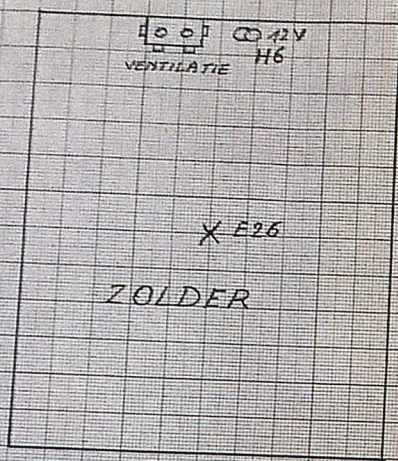 12V
H6
VENTILATIE
E26
ZOLDER